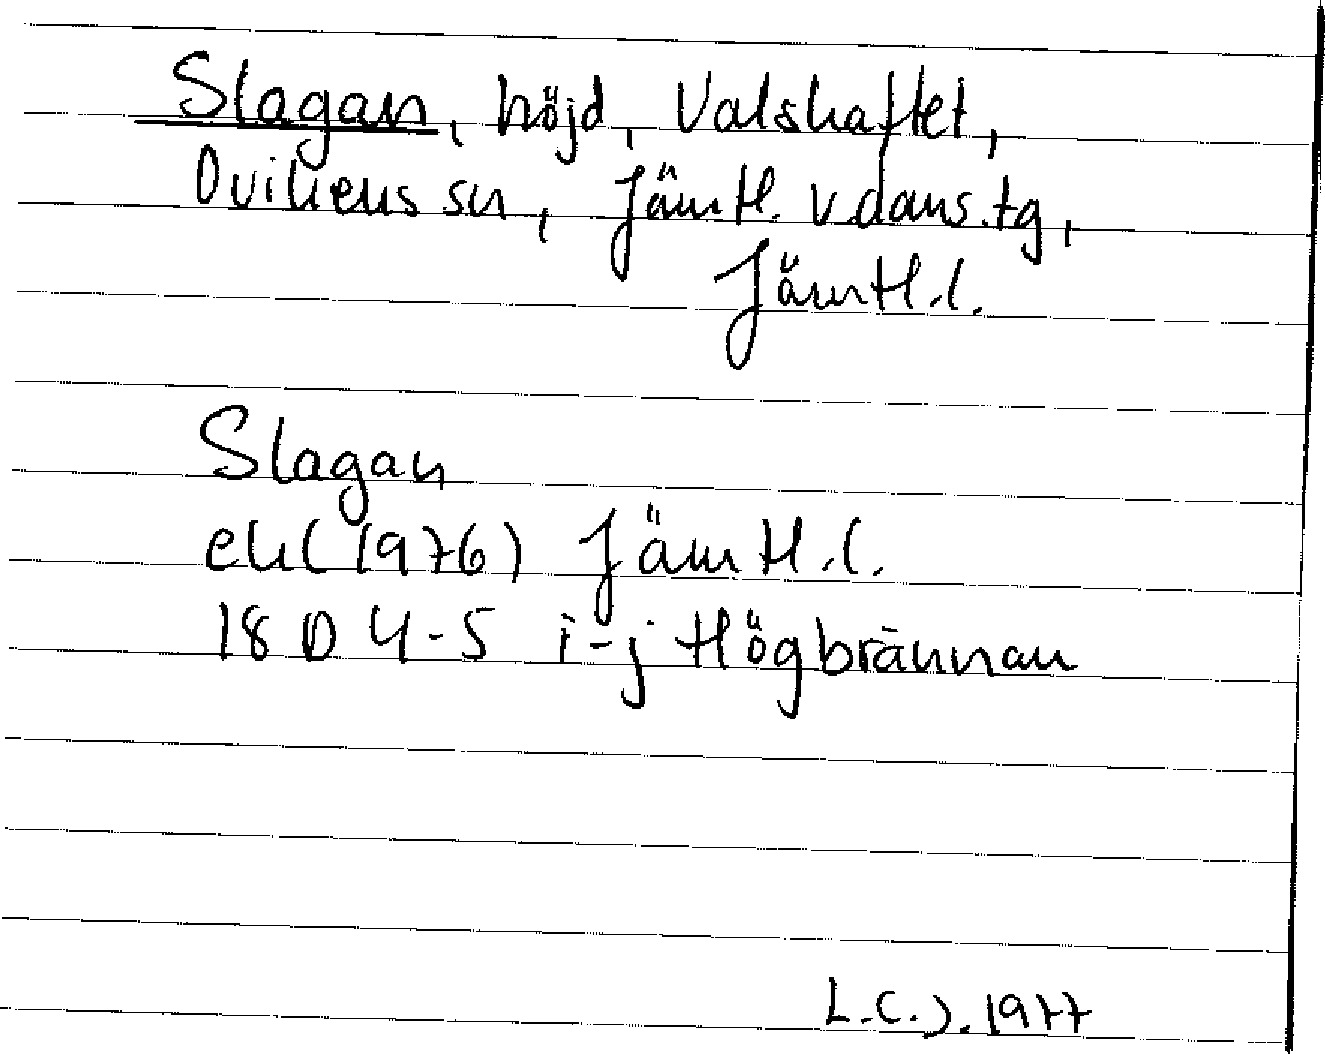 Slagan, höjd, Valskaftet,
Ovikens sn, Jämtl. v. doms. tg,
Jämtl. l.
Slagan
ek (1976) Jämtl. l.
18 D 4-5 i-j Högbrännan
L.C.J. 1977